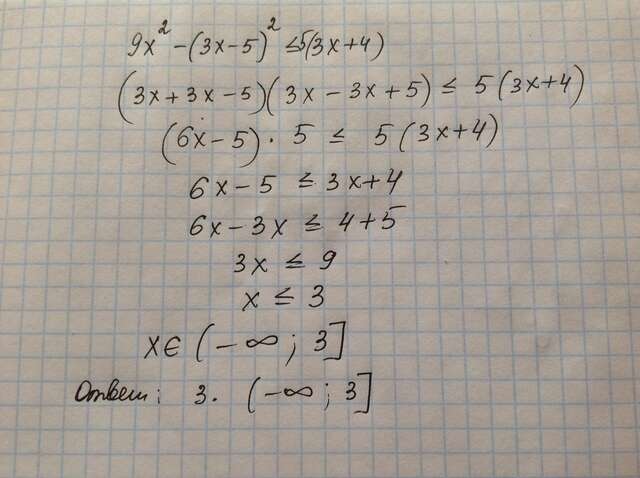 9x² - (3x-5)² ≤ 5(3x+4)
(3x+3x-5)(3x-3x+5) ≤ 5(3x+4)
(6x-5)·5 ≤ 5(3x+4)
6x-5 ≤ 3x+4
6x-3x ≤ 4+5
3x ≤ 9
x ≤ 3
x∈(-∞; 3]
Ответ: 3. (-∞; 3]